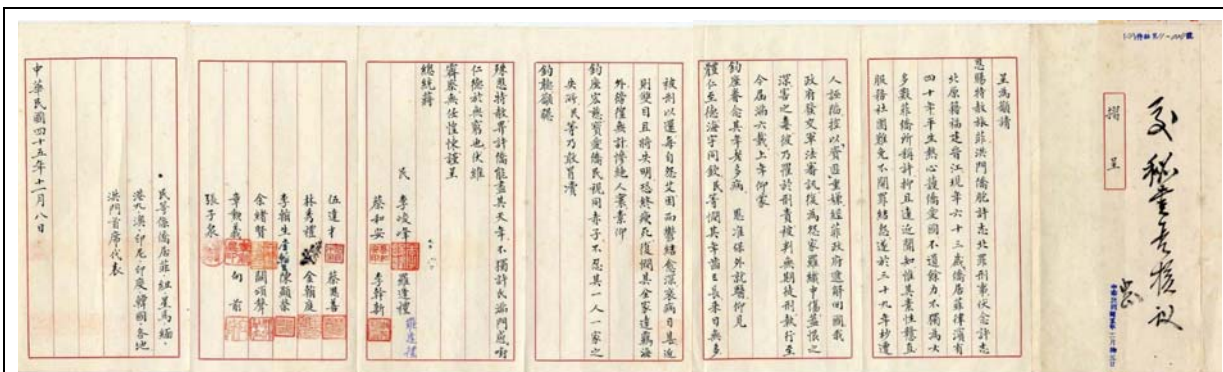 摺呈
呈為籲請
恩賜特赦旅菲洪門僑胞許志北罪刑事伏念許志
北原籍福建晉江現年六十三歲僑居菲律濱有
四十年平生熱心護僑愛國不遺餘力不獨為大
多數菲僑所稱許抑且遠近聞知惟其素性戇直
服務社團難免不開罪結怨遂於三十九年杪遭
人誣陷控以資匪重嫌經菲政府遞解回國我
政府發交軍法審訊復為怨家羅織中傷蓋恨之
深害之毒彼乃罹於刑責被判無期徒刑執行至
今屆滿六載上年仰蒙
鈞座眷念其年耄多病 恩准保外就醫仰見
體仁至德海宇同欽民等憫其年齒已長來日無多
被刑以還每自怨艾因而鬱結愈深衰病日甚近
則雙目且將失明恐終瘐死復憫其全家遠羈海
外徬徨無計慘絕人寰素仰
鈞座宏慈寶愛僑民視同赤子不忍其一人一家之
失所民等乃敢冒瀆
鈞聽籲懇
殊恩特赦俾許僑能盡其天年不獨許氏滿門感
仁德於無窮也伏維
睿鑒無任惶悚謹呈
總統蔣
民 李峻峰 羅達禮
蔡和安 李幹新
伍達才 蔡恩善
林秀禮 金翰庭
李翰生 陳顯榮
余緒賢 關頌聲
章勳義 向前
張子泉
民等係僑居菲、紐、星、馬、緬、
港、九、澳、印尼、印度、韓國各地
洪門首席代表
中華民國四十五年十一月八日